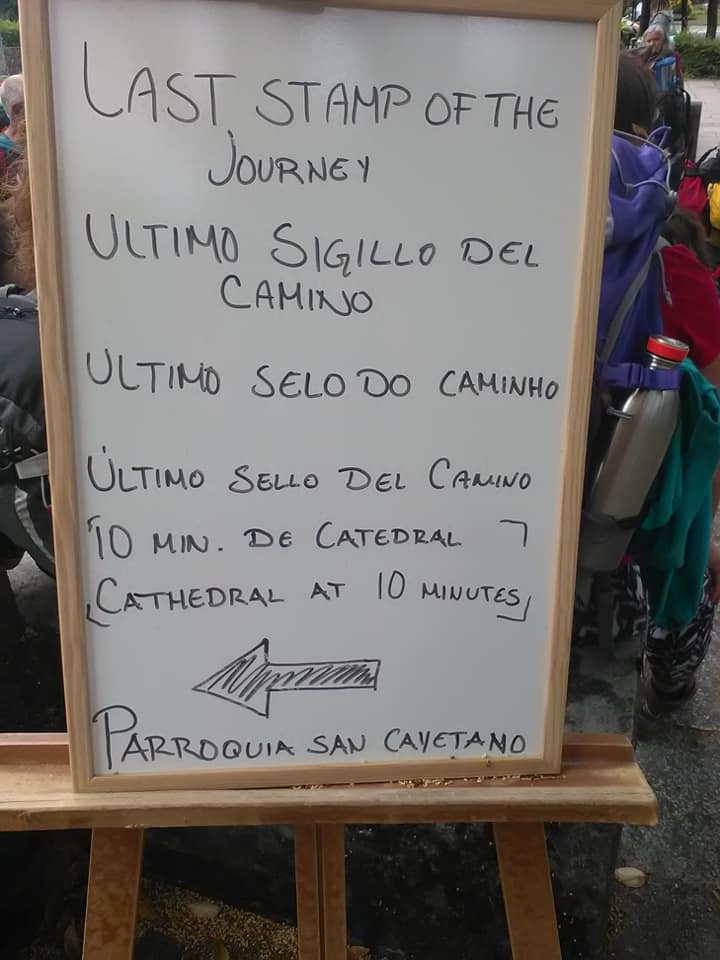 LAST STAMP OF THE
JOURNEY
ULTIMO SIGILLO DEL
CAMINO
ULTIMO SELO DO CAMINHO
ÚLTIMO SELLO DEL CAMINO
10 MIN. DE CATEDRAL
CATHEDRAL AT 10 MINUTES
PARROQUIA SAN CAYETANO